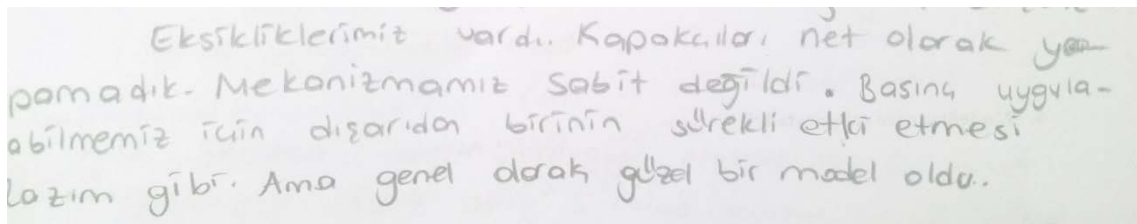 Eksikliklerimiz vardı. Kapakçıları net olarak ya
pamadık. Mekanizmamız sabit değildi. Basınç uygula-
abilmemiz için dışarıdan birinin sürekli etki etmesi
lazım gibi. Ama genel olarak güzel bir model oldu.